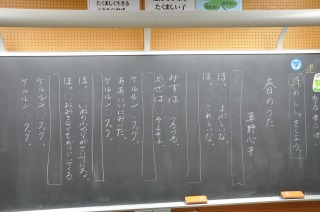 たくましく生きる
たくましい子
学
詩のししょをしよう。
春のうた
草野心平
ほっ まぶしいな。
ほっ うれしいな。
みずは つるつる。
かぜは そよそよ。
ケルルン クック。
ああいいにおいだ。
ケルルン クック。
ほっ いぬのふぐりがさいている。
ほっ おおきなくもがうごいてくる。
ケルルン クック。
ケルルン クック。